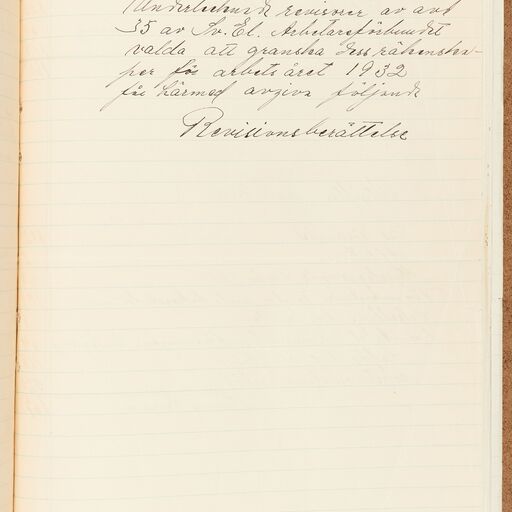 Undertecknade revisorer av avd
35 av Sv. El. Arbetareförbundet
valda att granska dess räkenska-
per för arbets året 1932
får härmed avgiva följande
Revisionsberättelse